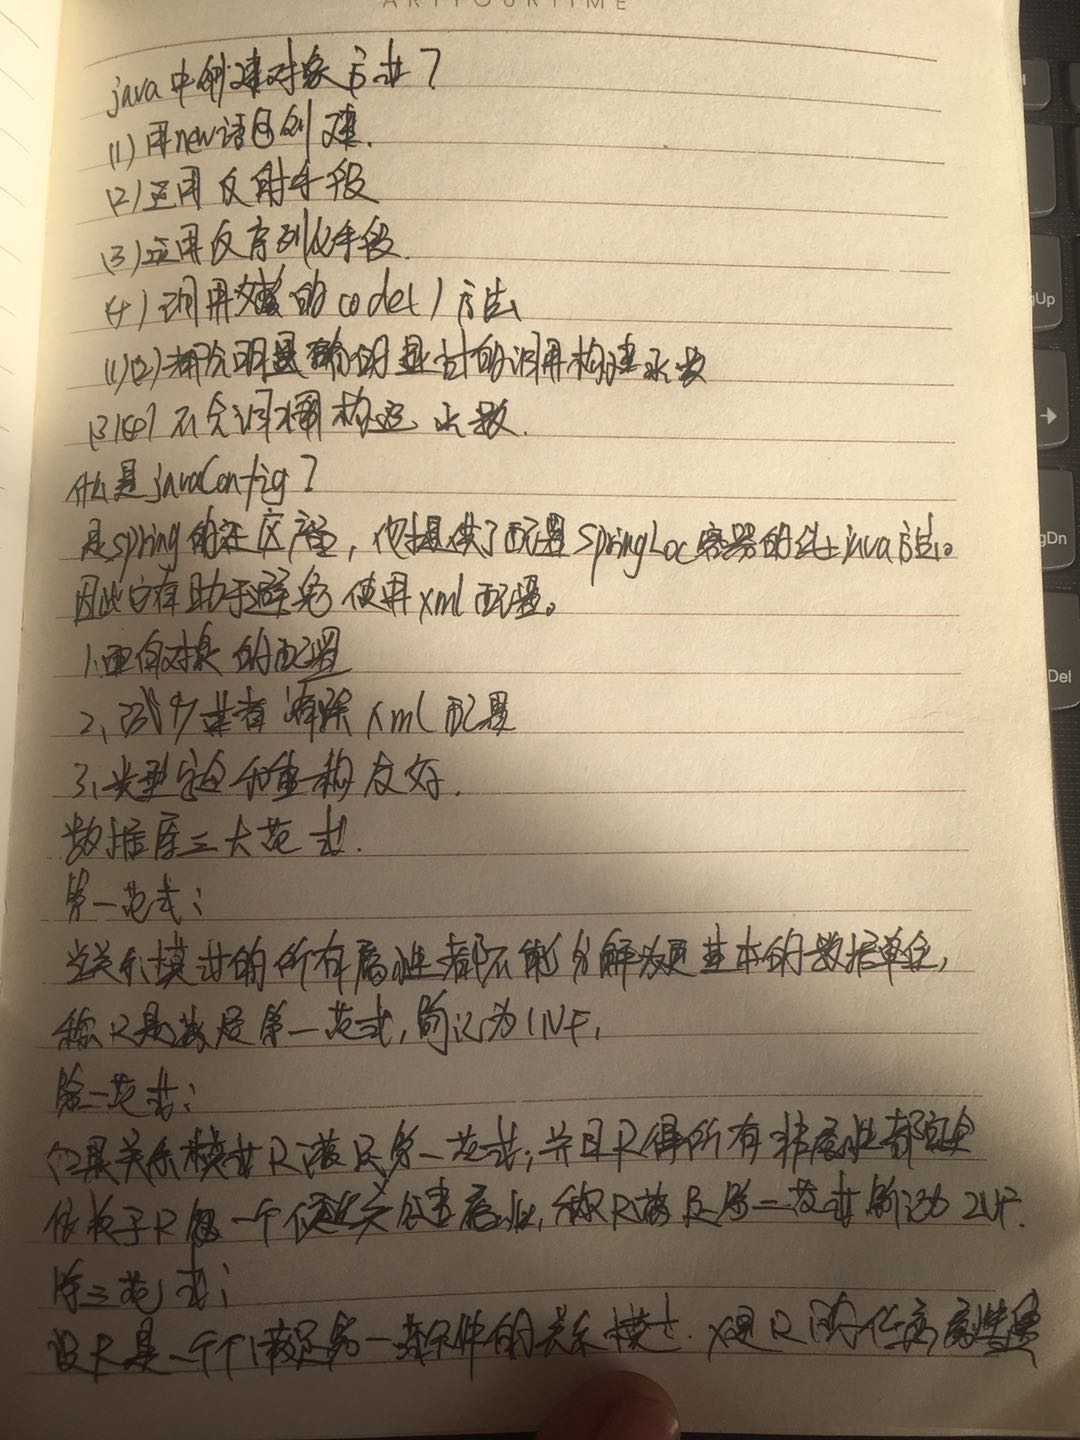 ARTFOURTIME
java中创建对象方式?
(1)用new语句创建.
(2)运用反射手段
(3)运用反序列化手段.
(4)调用对象的code()方法
(1)(2)都会明显的显式的调用构造函数
(3)(4)不会调用构造函数.
什么是javaConfig?
是spring的社区产品,他提供了配置SpringLoc容器的纯java方法。
因此它有助于避免使用xml配置。
1.面向对象的配置
2、减少或者消除xml配置
3、类型安全和重构友好.
数据库三大范式.
第一范式:
当关系模式的所有属性都不能分解为更基本的数据单位,
称R是满足第一范式,简记为1NF,
第二范式:
如果关系模式R满足第一范式,并且R得所有非属性都完全
依赖于R的一个候选关键属性,称R满足第二范式简记为2NF.
第三范式:
设R是一个满足第一条件的关系模式.X是R的任意属性集